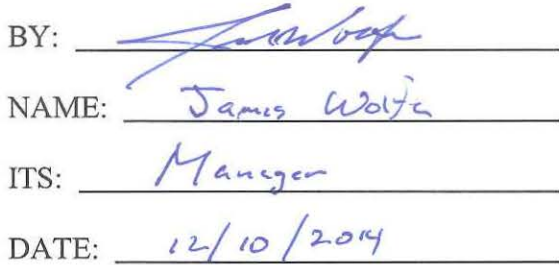 BY:
NAME: James
ITS: Manager
DATE: 12/10/2014